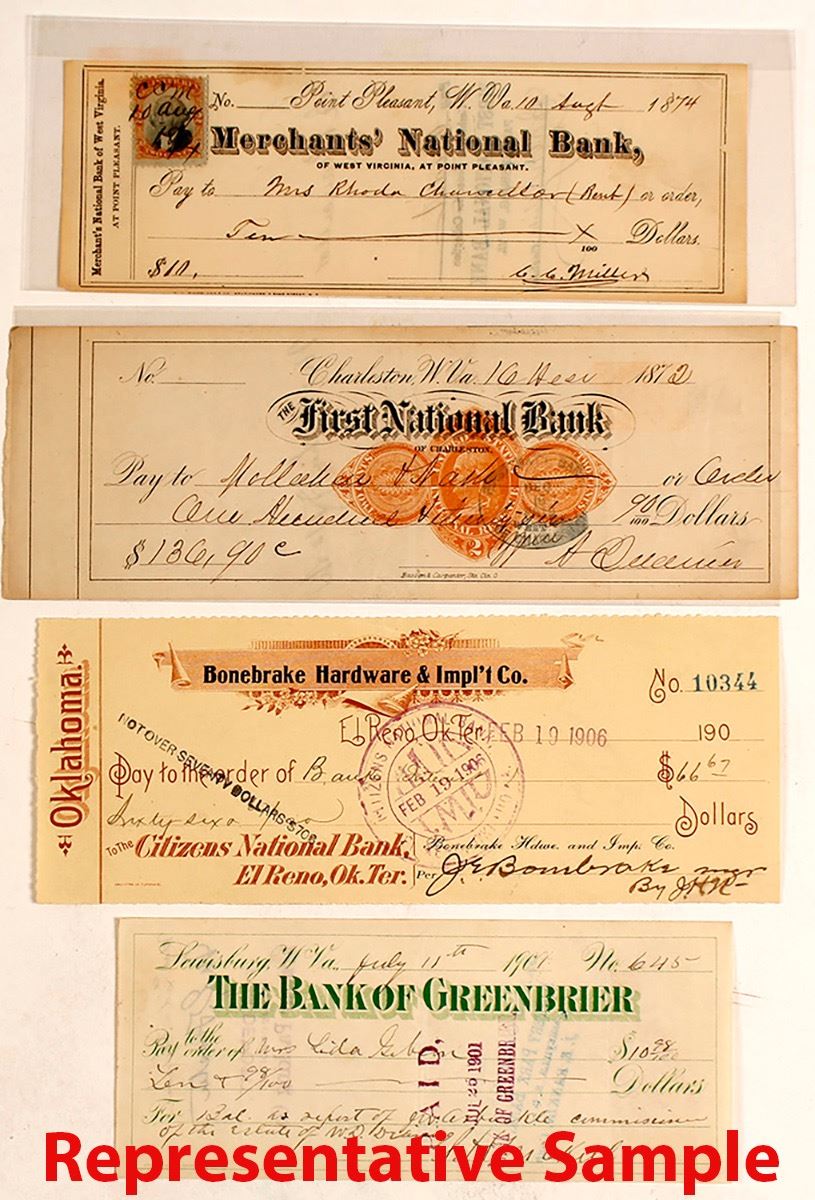 Merchant's National Bank of West Virginia.
AT POINT PLEASANT.
CCM
10 Aug
No. Point Pleasant, W. Va. 10 Augt 1874
Merchants' National Bank,
OF WEST VIRGINIA, AT POINT PLEASANT.
Pay to Mrs Rhoda Chancellor (Rent) or order,
Ten X/100 Dollars.
$10, C. C. Miller
No. Charleston, W. Va. 16 1872
THE First National Bank
OF CHARLESTON.
Pay to or Order
One Hundred & Thirty six 90/100 Dollars
$136,90c
Oklahoma.
Bonebrake Hardware & Impl't Co.
No. 10344
El Reno, Ok. Ter. FEB 19 1906 190
NOT OVER SEVENTY DOLLARS $70$
Pay to the order of $66 67
FEB 19 1906
Sixty six Dollars
To The Citizens National Bank, Bonebrake Hdwe. and Imp. Co.
El Reno, Ok. Ter. Per J E Bonebrake mgr
By
Lewisburg, W Va. July 11th 190 No. 645
THE BANK OF GREENBRIER
Pay to the order of Mrs Lida $10 98/100
Ten & 98/100 Dollars
PAID.
JUL 26 1901
BANK OF GREENBRIER
For Bal. as report of commissioner
of the estate of
Representative Sample